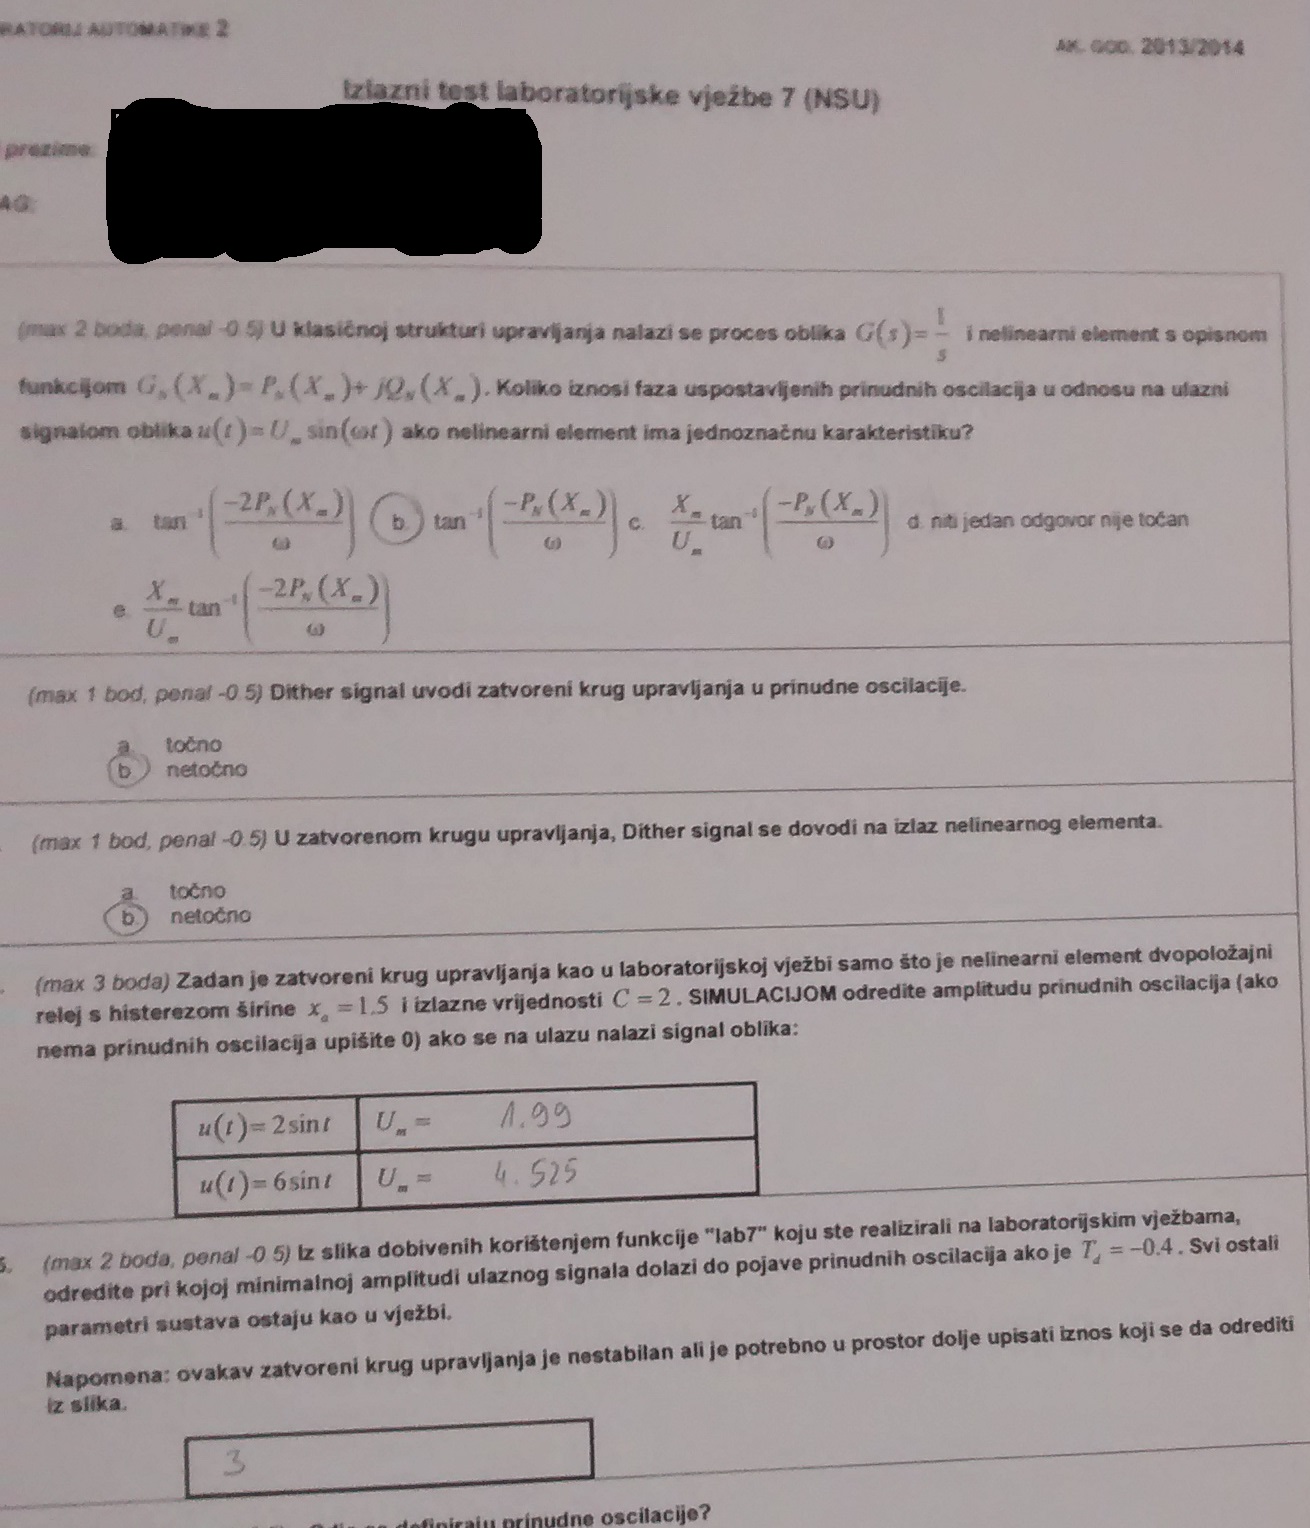 RATORIJ AUTOMATIKE 2
AK. GOD. 2013/2014
Izlazni test laboratorijske vježbe 7 (NSU)
prezime:
AG:
(max 2 boda, penal -0.5) U klasičnoj strukturi upravljanja nalazi se proces oblika G(s)=1/s i nelinearni element s opisnom
funkcijom G_N(X_m)=P_N(X_m)+jQ_N(X_m). Koliko iznosi faza uspostavljenih prinudnih oscilacija u odnosu na ulazni
signalom oblika u(t)=U_m sin(ωt) ako nelinearni element ima jednoznačnu karakteristiku?
a. tan⁻¹(-2P_N(X_m)/ω) b. tan⁻¹(-P_N(X_m)/ω) c. X_m/U_m tan⁻¹(-P_N(X_m)/ω) d. niti jedan odgovor nije točan
e. X_m/U_m tan⁻¹(-2P_N(X_m)/ω)
(max 1 bod, penal -0.5) Dither signal uvodi zatvoreni krug upravljanja u prinudne oscilacije.
a. točno
b. netočno
(max 1 bod, penal -0.5) U zatvorenom krugu upravljanja, Dither signal se dovodi na izlaz nelinearnog elementa.
a. točno
b. netočno
(max 3 boda) Zadan je zatvoreni krug upravljanja kao u laboratorijskoj vježbi samo što je nelinearni element dvopoložajni
relej s histerezom širine x_a = 1.5 i izlazne vrijednosti C = 2. SIMULACIJOM odredite amplitudu prinudnih oscilacija (ako
nema prinudnih oscilacija upišite 0) ako se na ulazu nalazi signal oblika:
u(t)=2sint U_m = 1.99
u(t)=6sint U_m = 4.525
5. (max 2 boda, penal -0.5) Iz slika dobivenih korištenjem funkcije "lab7" koju ste realizirali na laboratorijskim vježbama,
odredite pri kojoj minimalnoj amplitudi ulaznog signala dolazi do pojave prinudnih oscilacija ako je T_d = -0.4. Svi ostali
parametri sustava ostaju kao u vježbi.
Napomena: ovakav zatvoreni krug upravljanja je nestabilan ali je potrebno u prostor dolje upisati iznos koji se da odrediti
iz slika.
3
definiraju prinudne oscilacije?